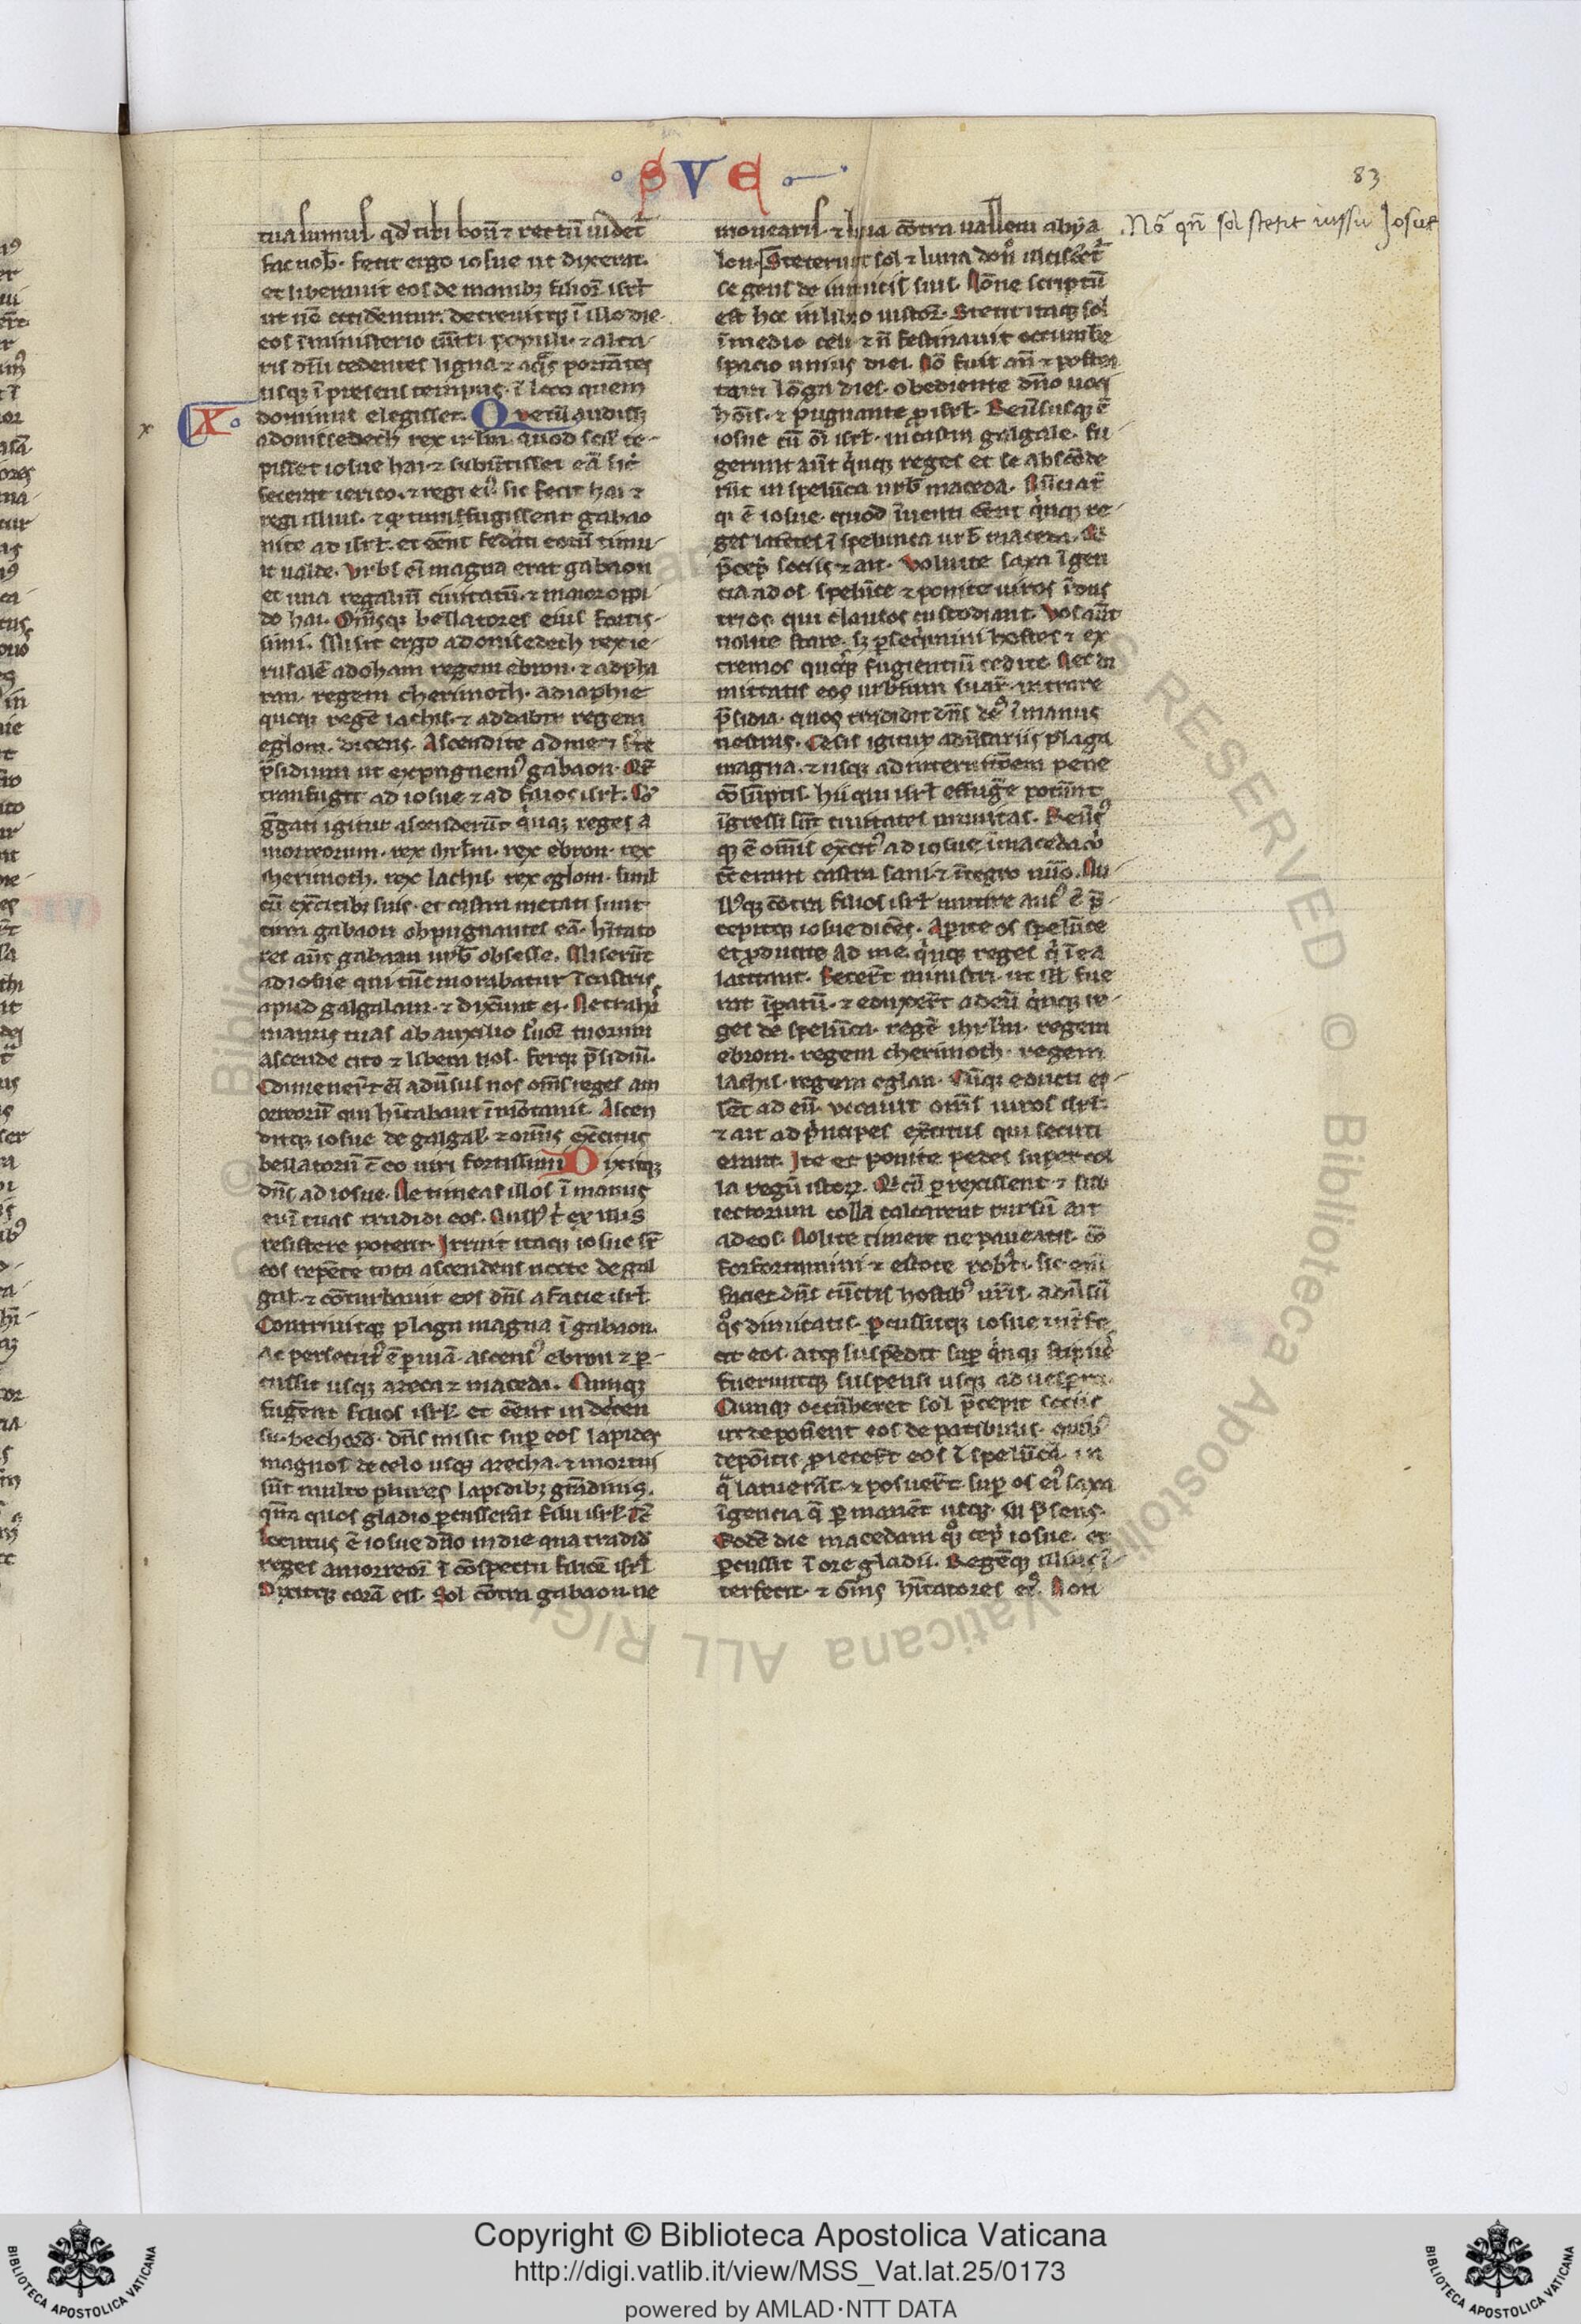 S V E
83
tua sumus qđ tibi bonū ⁊ rectū uidet̄
fac nob̄. fecit ergo iosue ut dixerat.
et liberauit eos de manibꝫ filioꝝ isrł
ut nō occidentur. decreuitqꝫ ī illo die
eos ī ministerio cūcti populi. ⁊ alta-
ris dn̄i cedentes ligna ⁊ aq̄s portātes
usqꝫ ī presens tempus. ī loco quem
X
x
dominus elegisset. Que cū audissꝫ
adonisedech rex ir̄lm. quod scił ce-
pisset iosue hai ⁊ subūtisset eā sic̄
fecerat ierico. ⁊ regi eiꝰ. sic fecit hai ⁊
regi illius. ⁊ ꝙ transfugissent gabao
nite ad isrł. et eēnt federati eorū timu-
it ualde. Vrbs eī magna erat gabaon
et una regaliū ciuitatū. ⁊ maior oppi-
do hai. Om̄sqꝫ bellatores eius fortis-
simi. Misit ergo adonisedech rex ie-
rusalē ad oham regem ebron. ⁊ ad pha
ran. regem cherimoth. ad iaphie
quoqꝫ regē lachis. ⁊ ad dabir regem
eglom. dicens. Ascendite ad me ⁊ fer̄te
p̄sidium ut expugnemꝰ gabaon. Qr̄
tranfugit ad iosue ⁊ ad filios isrł. Cō
g̅gati igitur ascenderūt q̇nqꝫ reges a
morreorum. rex ihrłm. rex ebron. rex
cherimoth. rex lachis. rex eglom. simł
cū exc̄itibꝫ suis. et castra metati sunt
circa gabaon obpugnantes eā. hītato
res aūt gabaon urb̄ obsesse. Miserūt
ad iosue qui tūc morabatur ī castris
apud galgalam. ⁊ dixerunt ei. Ne trahas
manus tuas ab auxilio suoꝝ tuorum
ascende cito ⁊ libera nos. ferqꝫ p̄sidiū.
Conuener̄t eī aduersus nos om̄s reges am
orreorū qui hītabant ī mōtanis. Ascen
ditqꝫ iosue de galgał. ⁊ omnis exc̄itus
bellatorū c̄ eo uiri fortissimi. Dixitqꝫ
dn̄s ad iosue. Ne timeas illos ī manus
enī tuas tradidi eos. Nullꝰ t̄ ex illis
resistere poterit. Irruit itaqꝫ iosue sr̄
eos repēte tota ascendens nocte de gal
gał. ⁊ cōturbauit eos dn̄s a facie isrł.
Contriuitqꝫ plaga magna ī gabaon.
ac persecutꝰ ē p uiā. ascensꝰ ebron ⁊ p̲-
cussit usqꝫ azeca ⁊ maceda. Cumqꝫ
fugerent filios isrł. et eēnt in decen
su. bethorō. dn̄s misit sup̲ eos lapides
magnos de celo usqꝫ azecha. ⁊ mortui
sūt multo plures lapidibꝫ grādinis.
q̄m quos gladio p̲cusserāt filii isrł. Tc̄
locutus ē iosue dn̄o in die qua tradid̄
reges amorreoꝝ ī cōspectu filioꝝ isrł
Dixitqꝫ corā eis. Sol cōtra gabaon ne
mouearis. ⁊ luna cōtra uallem ahya
lon. Steterunt sol ⁊ luna don̄ ulciscet̄
se gens de inimicis suis. Nōne scriptū
est hoc in libro iustoꝝ. Stetit itaqꝫ sol
ī medio celi ⁊ n̄ festinauit occumbe
spacio unius diei. Nō fuit an̄ ⁊ postea
tam lōga dies. obediente dn̄o uoci
hōis. ⁊ pugnante p isrł. Reuersusqꝫ ē
iosue cū oī isrł. in castra galgale. fu-
gerunt aūt q̇nqꝫ reges et se abscōde
rūt in spelūca urb̄ maceda. Nūciat̄
qꝫ ē iosue. quod īuenti eēnt q̇nqꝫ re-
ges latētes ī spelunca urb̄ maceda. Q̇
p̄cep̲ sociis ⁊ ait. Voluite saxa īgen
tia ad os spelūce ⁊ ponite uiros īdus
trios. qui clausos custodiant. Vos aūt
nolite stare. sꝫ p̲seq̇mini hostes ⁊ ex
tremos quosqꝫ fugientiū cedite. Nec di
mittatis eos urbium suaꝝ. intrare
p̄sidia. quos tradidit dn̄s deꝰ ī manus
uestras. Cesis igitur aduersariis plaga
magna. ⁊ usqꝫ ad internicōem pene
cōsūptis. hii qui isrł effuge̅ potuer̄t
īgressi sūt ciuitates munitas. Reuersꝰ
qꝫ ē omnis exc̄itꝰ ad iosue ī maceda. ubi
tc̄ erant castra. sani ⁊ īntegro nūo. Nu
llꝰqꝫ cōtra filios isrł mutire ausꝰ ē. p̄-
cepitqꝫ iosue dicēs. Aperite os spelūce
et p̲ducite ad me q̇nqꝫ reges q̇ ī ea
latitant. Fecer̄t ministri. ut ill̄ fue
rat īp̲atū. ⁊ eduxer̄t ad eū q̇nqꝫ re-
ges de spelūca. regē ihrłm. regem
ebrom. regem cherimoth. regem
lachis. regem eglan. Cūqꝫ educti es-
sēt ad eū. uocauit omīs uiros isrł.
⁊ ait ad p̲ncipes exc̄itus qui secuti
erant. Ite et ponite pedes super col
la regū istoꝝ. Q̇ cū p̲rexissent. ⁊ sub
iectorum colla calcarent rursū ait
ad eos. Nolite timere ne paueatis. cō
forfortamini ⁊ estote rob̄ti. sic eni
faciet dn̄s cūctis hostibꝰ ur̄is. aduersū
q̊s dimicatis. p̲cussitqꝫ iosue int̄fe
cit eos. atqꝫ suspēdit sup̲ q̇nqꝫ stipites
fueruntqꝫ suspensi usqꝫ ad uesp̲ra.
Cumqꝫ occūberet sol p̄cepit sociis
ut deponerent eos de patibulis. quibꝰ
depōitis. p̲iecer̄t eos ī spelūcā. in
q̄ latuerāt. ⁊ posuer̄t sup̲ os eiꝰ saxa
īgencia q̄ p̲manēt usqꝫ. in p̄sens.
Eodē die macedam quoqꝫ cep̲ iosue. et
p̲cussit ī ore gladii. Regēqꝫ illius ī-
terfecit. ⁊ om̄s hītatores eiꝰ. Non
Nō qn̄ sol stetit iussu Josue
Copyright © Biblioteca Apostolica Vaticana
http://digi.vatlib.it/view/MSS_Vat.lat.25/0173
powered by AMLAD·NTT DATA
BIBLIOTECA APOSTOLICA VATICANA
BIBLIOTECA APOSTOLICA VATICANA